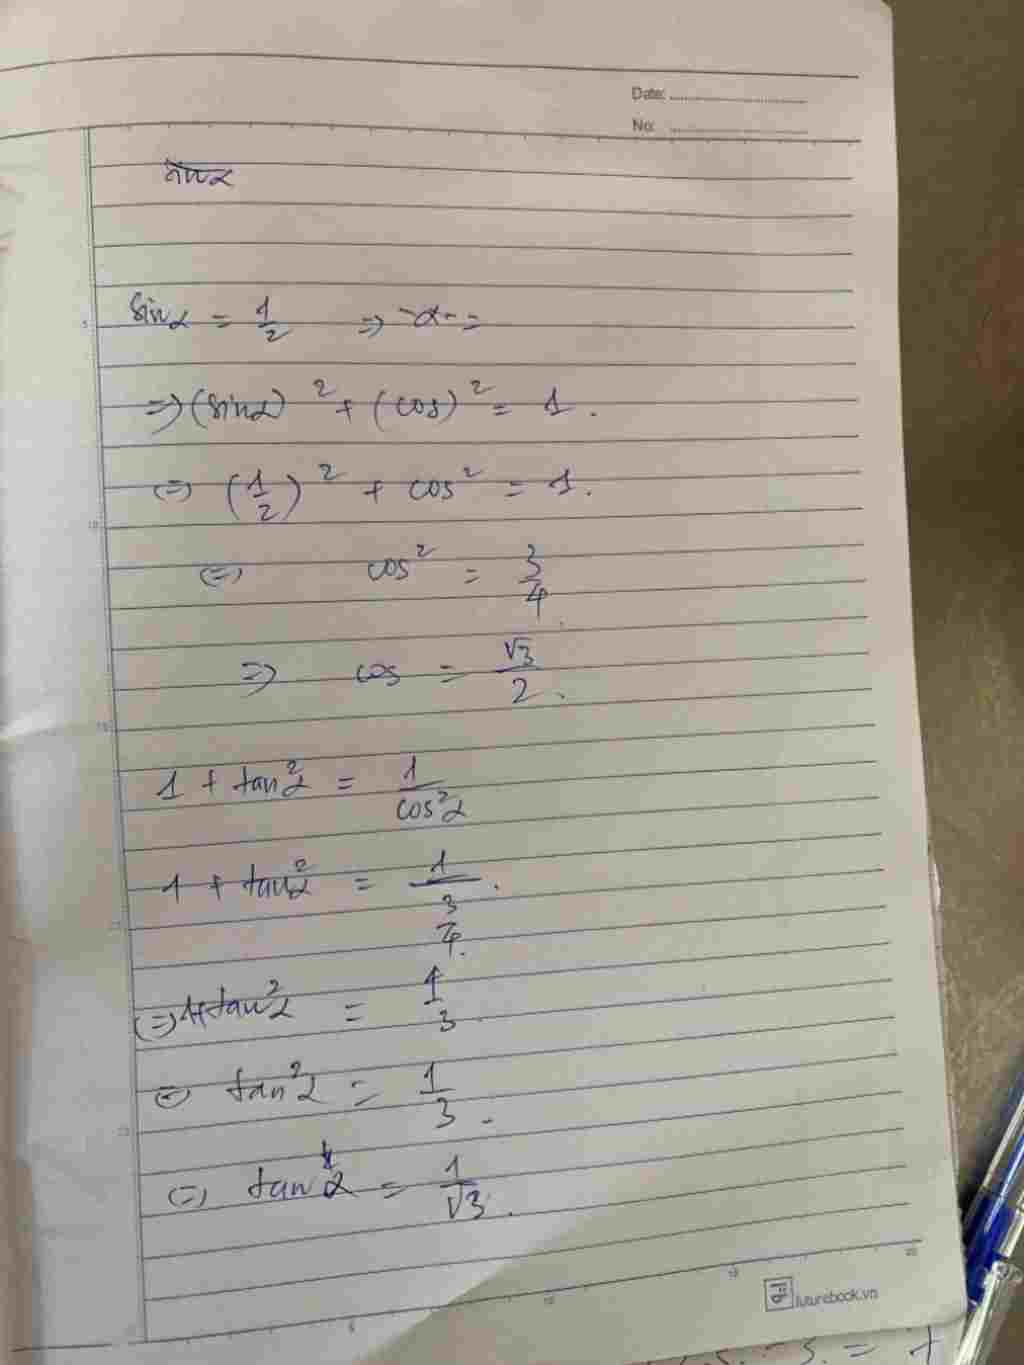 Date:
No:
sinα = 1/2 => α =
=> (sinα)² + (cos)² = 1.
(=) (1/2)² + cos² = 1.
(=) cos² = 3/4
=> cos = √3/2.
1 + tan²α = 1/cos²α
1 + tan²α = 1/(3/4).
(=) 1+tan²α = 1/3
(=) tan²α = 1/3.
(=) tan α = 1/√3.
futurebook.vn